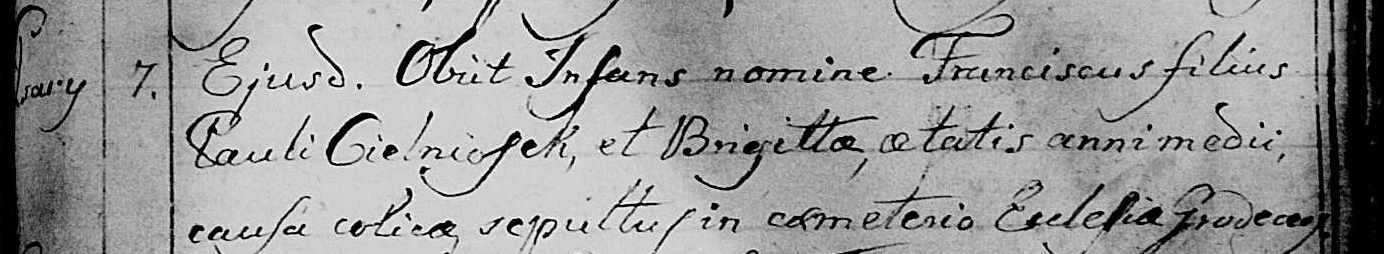 Psary 7. Ejusd. Obiit Infans nomine Franciscus filius
Pauli Cielniosek, et Brigittæ, ætatis anni medii,
causa colicæ, sepultus in cæmeterio Eclesiæ Grodecen.